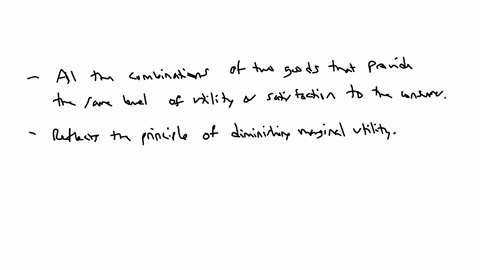 - All the combinations of two goods that provide
the same level of utility or satisfaction to the consumer.
- Reflects the principle of diminishing marginal utility.